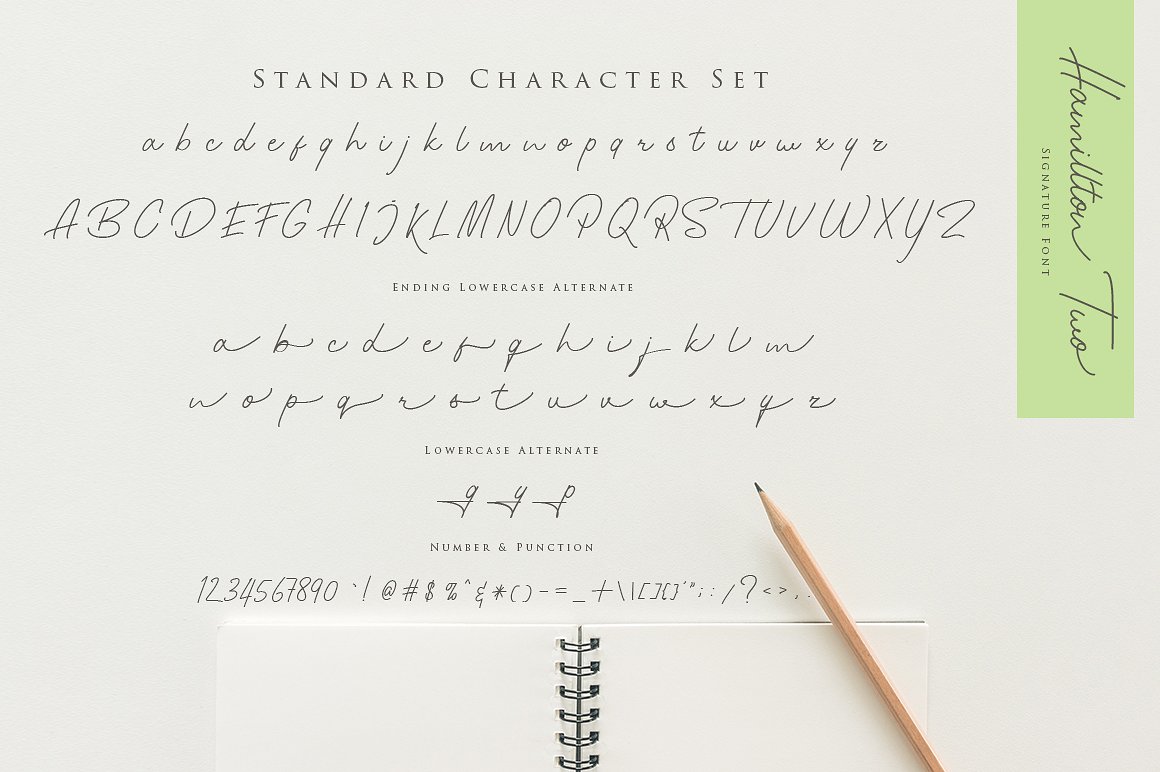 Standard Character Set
a b c d e f g h i j k l m n o p q r s t u v w x y z
A B C D E F G H I J K L M N O P Q R S T U V W X Y Z
Ending Lowercase Alternate
a b c d e f g h i j k l m
n o p q r s t u v w x y z
Lowercase Alternate
g y p
Number & Punction
1234567890 `! @ # $ % ^ & * ( ) - = _ + \ | [ ] { } ' " ; : / ? < > , .
Hamillton Two
Signature Font